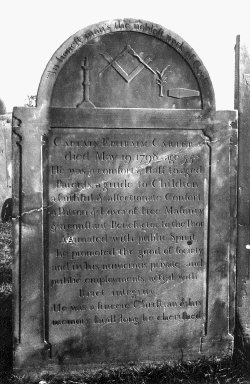 An honest mans the noblest work of God
CAPTAIN
died May 19 1796 age 55
He was a comfort, staff to aged
Parents a guide to Children
a faithful, affectionate Consort
a Patron & Lover of Free Masonry
Benefactor to the Poor
Animated with public Spirit
he promoted the good of Society
and in his numerous private and
public employments acted with
Exact integrity
He was a sincere Christian & his
memory shall long be cherished